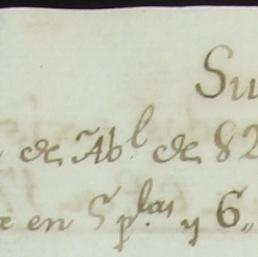 Su
de Abl de 82
en 5 plas y 6,,